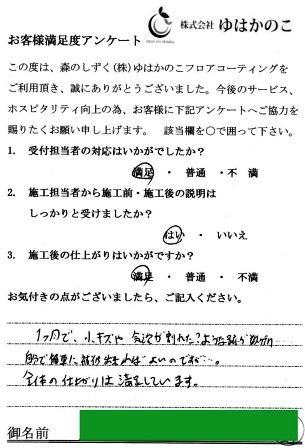 株式会社 ゆはかのこ
お客様満足度アンケート
この度は、森のしずく(株)ゆはかのこフロアコーティングを
ご利用頂き、誠にありがとうございました。今後のサービス、
ホスピタリティ向上の為、お客様に下記アンケートへご協力を
賜りたくお願い申し上げます。 該当欄を〇で囲って下さい。
1. 受付担当者の対応はいかがでしたか?
満足 ・ 普通 ・ 不 満
2. 施工担当者から施工前・施工後の説明は
しっかりと受けましたか?
はい ・ いいえ
3. 施工後の仕上がりはいかがですか?
満足 ・ 普通 ・ 不 満
お気付きの点がございましたら、ご記入ください。
1ヶ月で、小キズや が割れた?ような跡が
簡単に 出来ればよいのですが…。
全体の仕上がりは満足しています。
御名前